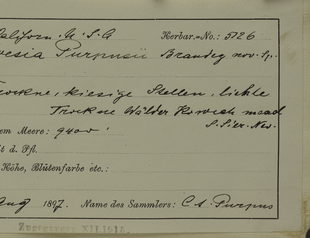 Californ. U. S. A Herbar.-No.: 5726
vesia Purpusii Brandeg nov. Sp.
rockne, kiesige Stellen, lichte
Trockne Wälder
S. Sier. Nev.
em Meere: 9400'
t d. Pfl.
Höhe, Blütenfarbe etc.:
Aug 1897. Name des Sammlers: C. A. Purpus